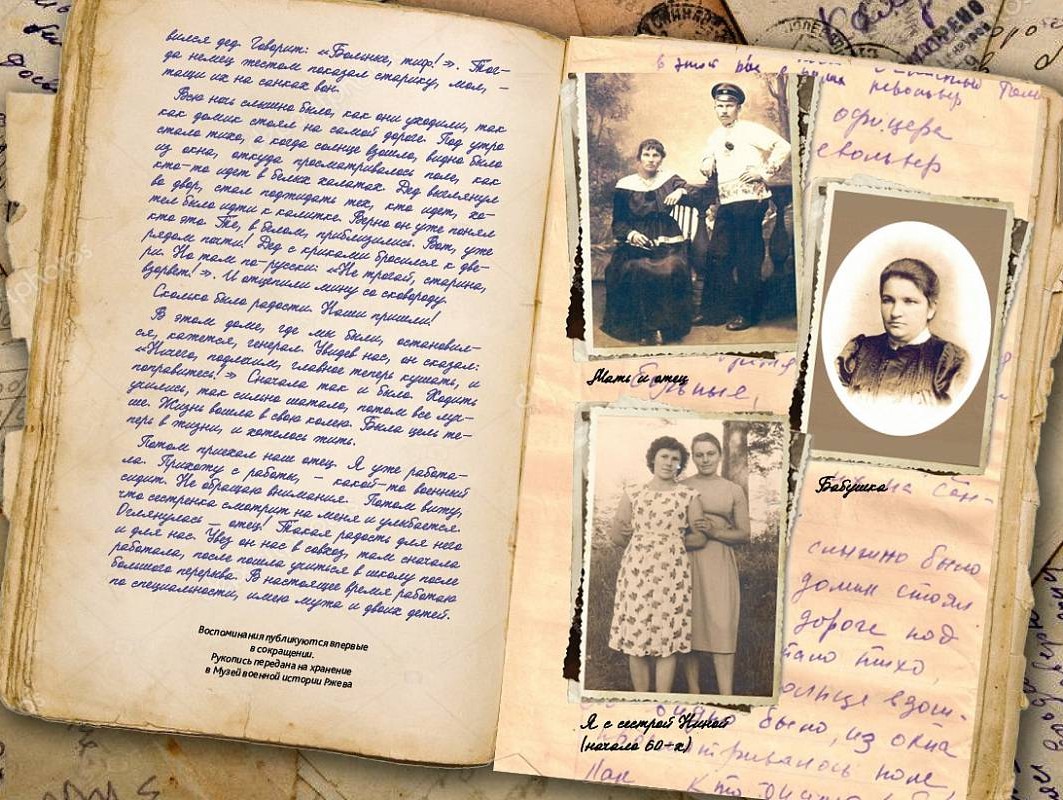 вился дед. Говорит: «Боленко, тиф!». Тог-
да немец жестом показал старику, мол, —
тащи их на санках вон.
Всю ночь слышно было, как они уходили, так
как домик стоял на самой дороге. Под утро
стало тихо, а когда солнце взошло, видно было
из окна, откуда просматривалось поле, как
кто-то идет в белых халатах. Дед выглянул
во двор, стал поджидать тех, кто идет, хо-
тел было идти к калитке. Верно он уже понял
кто это. Те, в белом, приблизились. Вот, уже
рядом почти! Дед с криками бросился к две-
ри. Но там по-русски: «Не трогай, старина,
взорвет!». И отцепили мину со сковороду.
Сколько было радости. Наши пришли!
В этом доме, где мы были, остановил-
ся, кажется, генерал. Увидев нас, он сказал:
«Ничего, подлечим, главное теперь кушать, и
поправитесь!» Сначала так и было. Ходить
учились, так сильно шатало, потом все луч-
ше. Жизнь вошла в свою колею. Была цель те-
перь в жизни, и хотелось жить.
Потом приехал наш отец. Я уже работа-
ла. Прихожу с работы, – какой-то военный
сидит. Не обращаю внимания. Потом вижу,
что сестренка смотрит на меня и улыбается.
Оглянулась – отец! Такая радость для него
и для нас. Увез он нас в совхоз, там сначала
работала, после пошла учиться в школу после
большого перерыва. В настоящее время работаю
по специальности, имею мужа и двоих детей.
Воспоминания публикуются впервые
в сокращении.
Рукопись передана на хранение
в Музей военной истории Ржева
револьвер
офицера
револьвер
Мать и отец
больные,
Бабушка
слышно было
домик стоял
дороге под
стало тихо,
солнце взош-
Я с сестрой Ниной
(начало 60-х)
было, из окна
поле,
как кто